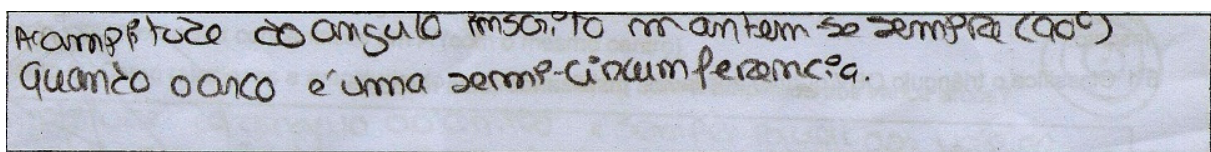 A amplitude do angulo inscrito mantem-se sempre (90º)
quando o arco é uma semi-circumferencia.